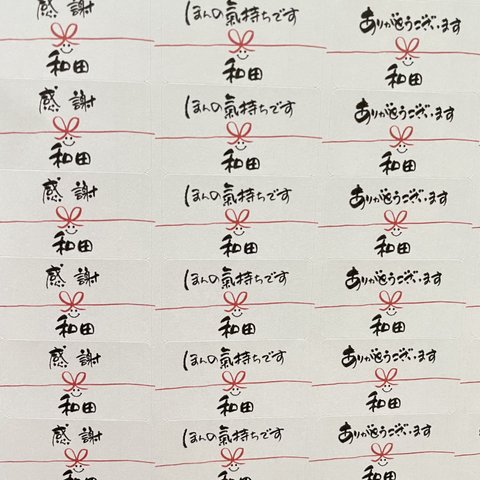 感謝 ほんの氣持ちです ありがとうございます
和田 和田 和田
感謝 ほんの氣持ちです ありがとうございます
和田 和田 和田
感謝 ほんの氣持ちです ありがとうございます
和田 和田 和田
感謝 ほんの氣持ちです ありがとうございます
和田 和田 和田
感謝 ほんの氣持ちです ありがとうございます
和田 和田 和田
感謝 ほんの氣持ちです ありがとうございます
和田 和田 和田